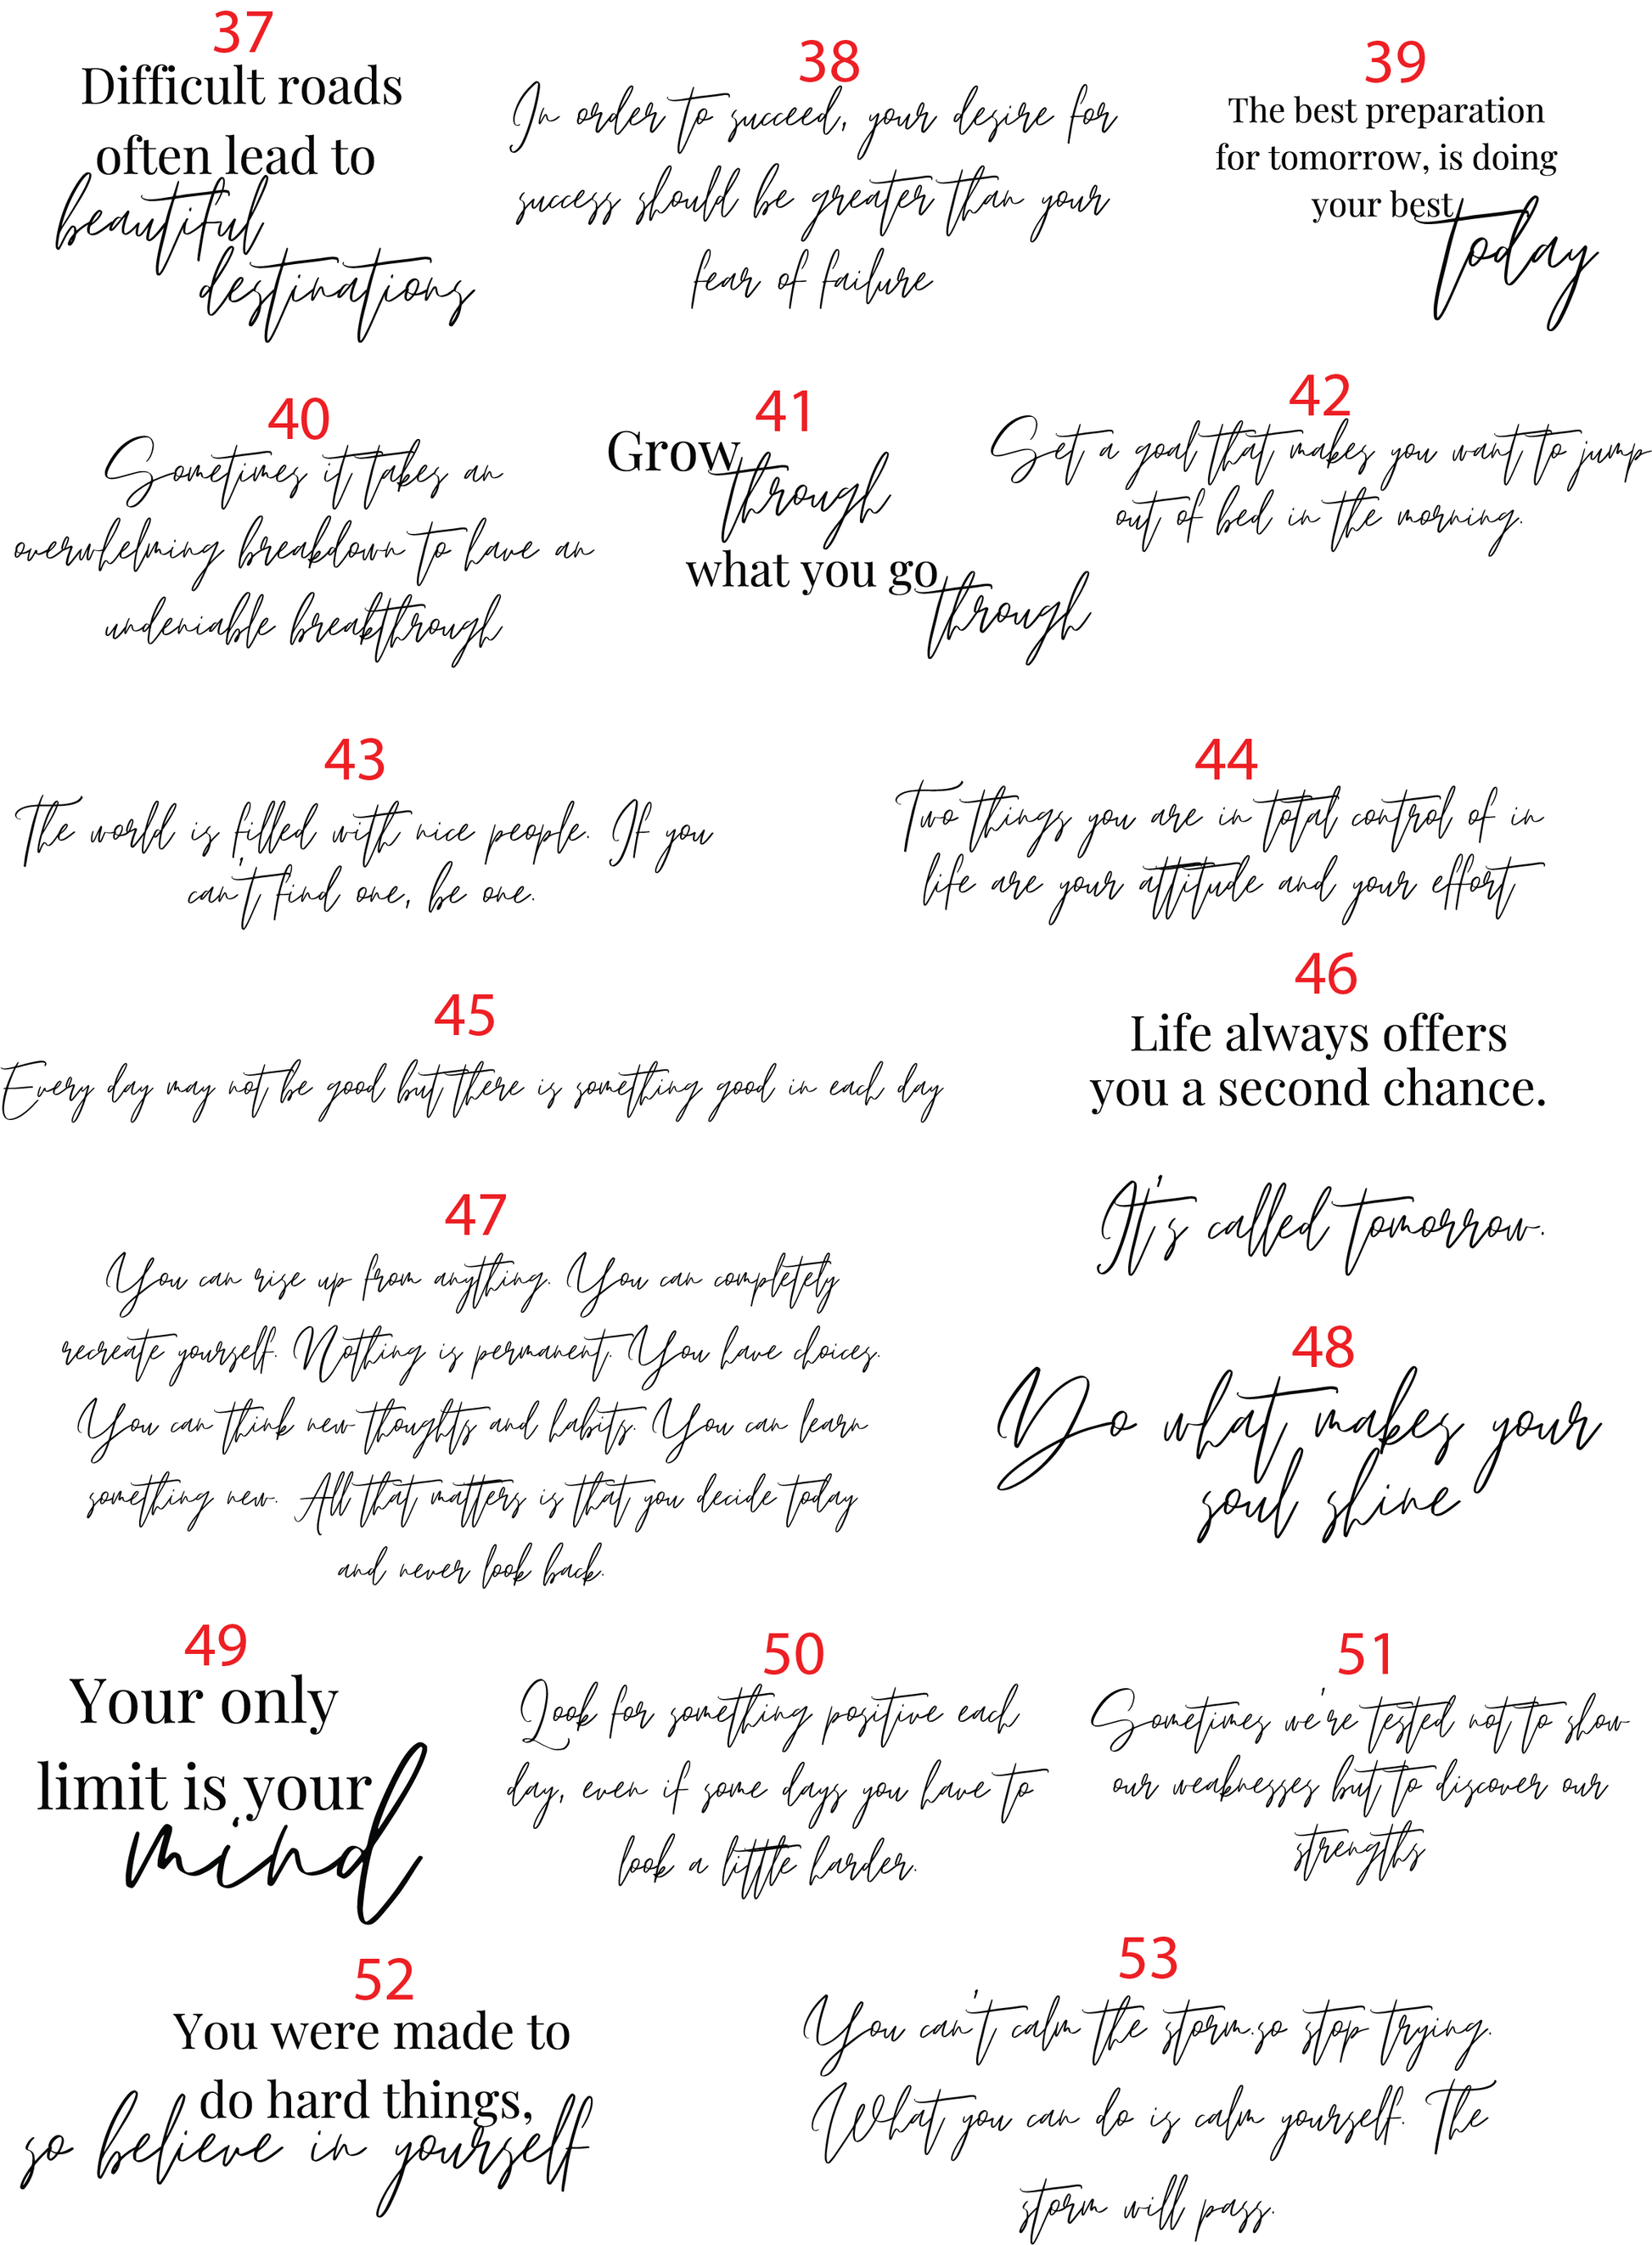 37
Difficult roads
often lead to
beautiful
destinations
38
In order to succeed, your desire for
success should be greater than your
fear of failure
39
The best preparation
for tomorrow, is doing
your best
today
40
Sometimes it takes an
overwhelming breakdown to have an
undeniable breakthrough
41
Grow
through
what you go
through
42
Set a goal that makes you want to jump
out of bed in the morning.
43
The world is filled with nice people. If you
can't find one, be one.
44
Two things you are in total control of in
life are your attitude and your effort
45
Every day may not be good but there is something good in each day
46
Life always offers
you a second chance.
It's called tomorrow.
47
You can rise up from anything. You can completely
recreate yourself. Nothing is permanent. You have choices.
You can think new thoughts and habits. You can learn
something new. All that matters is that you decide today
and never look back.
48
Do what makes your
soul shine
49
Your only
limit is your
mind
50
Look for something positive each
day, even if some days you have to
look a little harder.
51
Sometimes we're tested not to show
our weaknesses but to discover our
strengths
52
You were made to
do hard things,
so believe in yourself
53
You can't calm the storm.so stop trying.
What you can do is calm yourself. The
storm will pass.